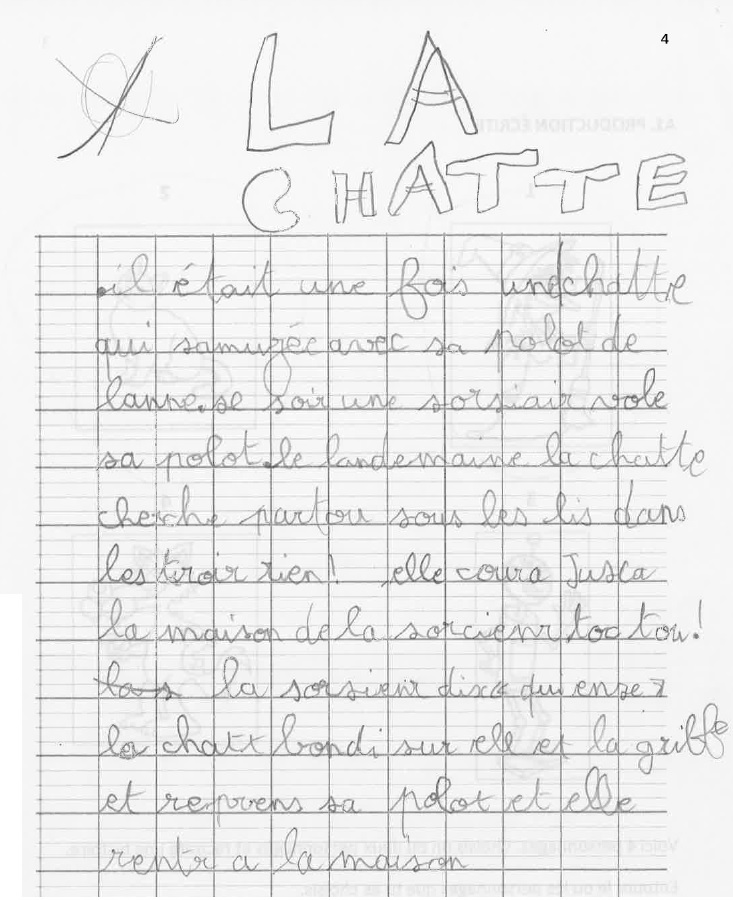 4
LA
CHATTE
il était une fois une chatte
qui samuzée avec sa polot de
lanne. se soir une sorsiair vole
sa polot. le landemaine la chatte
cherche partou sous les lis dans
les tiroir rien! elle coura Jusca
la maison de la sorcienr toc tou!
la sorsienr dix « qui en se »
la chatt bondi sur ell et la griffe
et reprens sa polot et elle
rentr a la maison